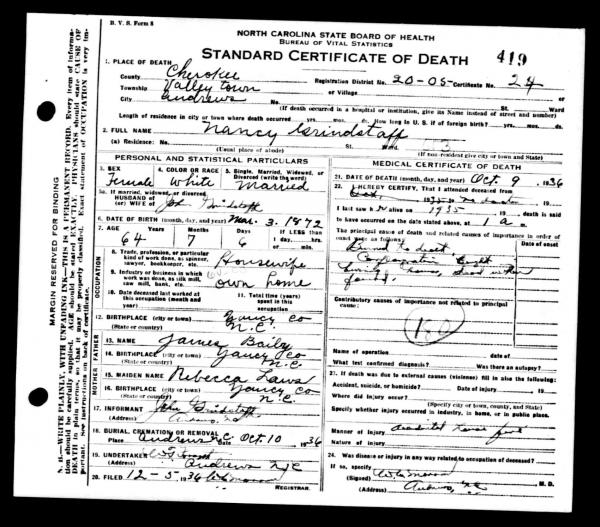 B. V. S. Form 8
NORTH CAROLINA STATE BOARD OF HEALTH
BUREAU OF VITAL STATISTICS
STANDARD CERTIFICATE OF DEATH 419
1. PLACE OF DEATH
County Cherokee Registration District No. 20-05 Certificate No. 24
Township Valleytown or Village
City Andrews St. Ward
(If death occurred in a hospital or institution, give its Name instead of street and number)
Length of residence in city or town where death occurred yrs. mos. ds. How long in U. S. if of foreign birth? yrs. mos. ds.
2. FULL NAME Nancy Grindstaff
(a) Residence: No. St. Ward.
(Usual place of abode) (If non-resident give city or town and State)
PERSONAL AND STATISTICAL PARTICULARS
3. SEX 4. COLOR OR RACE 5. Single, Married, Widowed, or Divorced (write the word)
Female White Married
5a. If married, widowed, or divorced
HUSBAND of
(or) WIFE of Grindstaff
6. DATE OF BIRTH (month, day, and year) Mar. 3. 1872
7. AGE Years Months Days If LESS than 1 day, hrs. or min.
64 7 6
OCCUPATION
8. Trade, profession, or particular kind of work done, as spinner, sawyer, bookkeeper, etc. Housewife
9. Industry or business in which work was done, as silk mill, saw mill, bank, etc. own home
10. Date deceased last worked at this occupation (month and year)
11. Total time (years) spent in this occupation
12. BIRTHPLACE (city or town) Yancy Co
(State or country) N.C.
FATHER
13. NAME James Baily
14. BIRTHPLACE (city or town) Yancy Co
(State or country) N.C.
MOTHER
15. MAIDEN NAME Rebecca Laws
16. BIRTHPLACE (city or town) Yancy Co
(State or country) N.C.
17. INFORMANT John Grindstaff
(Address) Andrews, N.C.
18. BURIAL, CREMATION OR REMOVAL
Place Andrews N.C. Date Oct. 10, 1936
19. UNDERTAKER
(Address) Andrews N.C.
20. FILED 12-5, 1936
REGISTRAR.
MEDICAL CERTIFICATE OF DEATH
21. DATE OF DEATH (month, day, and year) Oct. 9, 1936
22. I HEREBY CERTIFY, That I attended deceased from
I last saw h alive on 1935, death is said
to have occurred on the date stated above, at 1 a.
The principal cause of death and related causes of importance in order of onset were as follows: Date of onset
Burned to death
Contributory causes of importance not related to principal cause:
Name of operation Date of
What test confirmed diagnosis? Was there an autopsy?
23. If death was due to external causes (violence) fill in also the following:
Accident, suicide, or homicide? Date of injury 19
Where did injury occur?
(Specify city or town, county, and State)
Specify whether injury occurred in industry, in home, or in public place.
Manner of injury accidental house fire
Nature of injury
24. Was disease or injury in any way related to occupation of deceased?
If so, specify
(Signed) M. D.
(Address) Andrews, N.C.
MARGIN RESERVED FOR BINDING
N. B.—WRITE PLAINLY, WITH UNFADING INK—THIS IS A PERMANENT RECORD. Every item of information should be carefully supplied. AGE should be stated EXACTLY. PHYSICIANS should state CAUSE OF DEATH in plain terms, so that it may be properly classified. Exact statement of OCCUPATION is very important. See instructions on back of certificate.